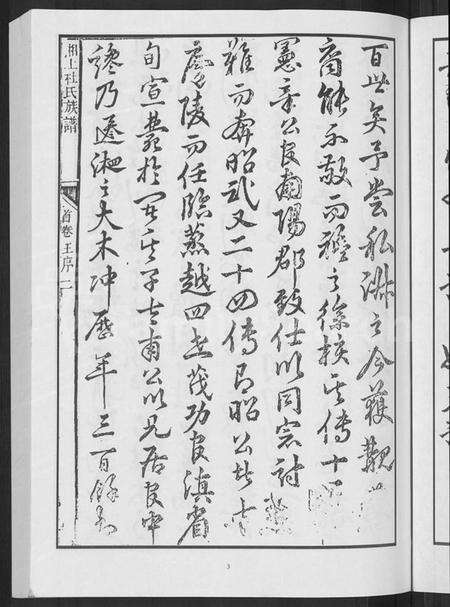 百世矣予嘗私淑之今獲觀
裔能不敬而禮之徐按其傳十
憲章公官南陽郡致仕以同宗討
難而奔昭武又二十四傳而昭公
廬陵而任臨蒸越四世茂功官滇省
旬宣薨於子南公以兄居官中
乃遷湘之大木冲歷年三百餘
湘上杜氏族譜
首卷 王序 二
3